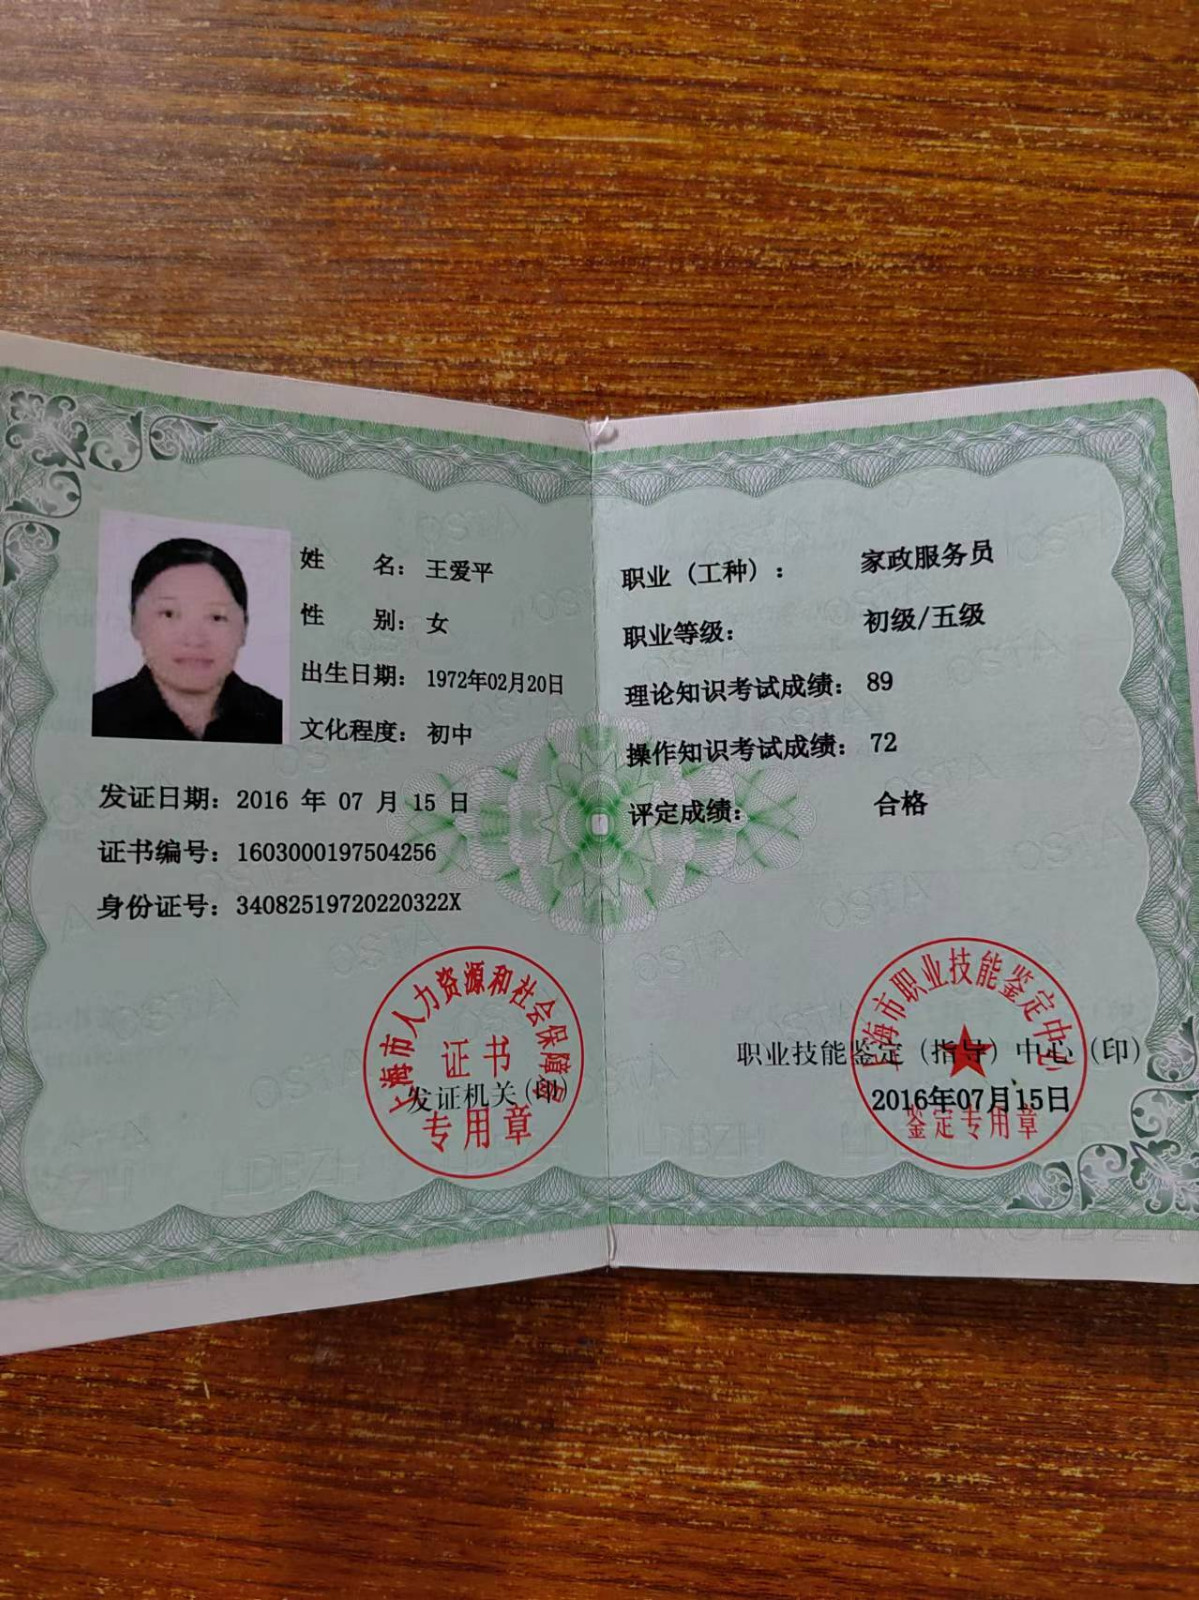 姓 名： 王爱平
性 别： 女
出生日期： 1972年02月20日
文化程度： 初中
发证日期：2016 年 07 月 15 日
证书编号：1603000197504256
身份证号：34082519720220322X
上海市人力资源和社会保障局
证书
发证机关(印)
专用章
职业（工种）： 家政服务员
职业等级： 初级/五级
理论知识考试成绩： 89
操作知识考试成绩： 72
评定成绩： 合格
上海市职业技能鉴定中心
职业技能鉴定（指导）中心（印）
2016年07月15日
鉴定专用章